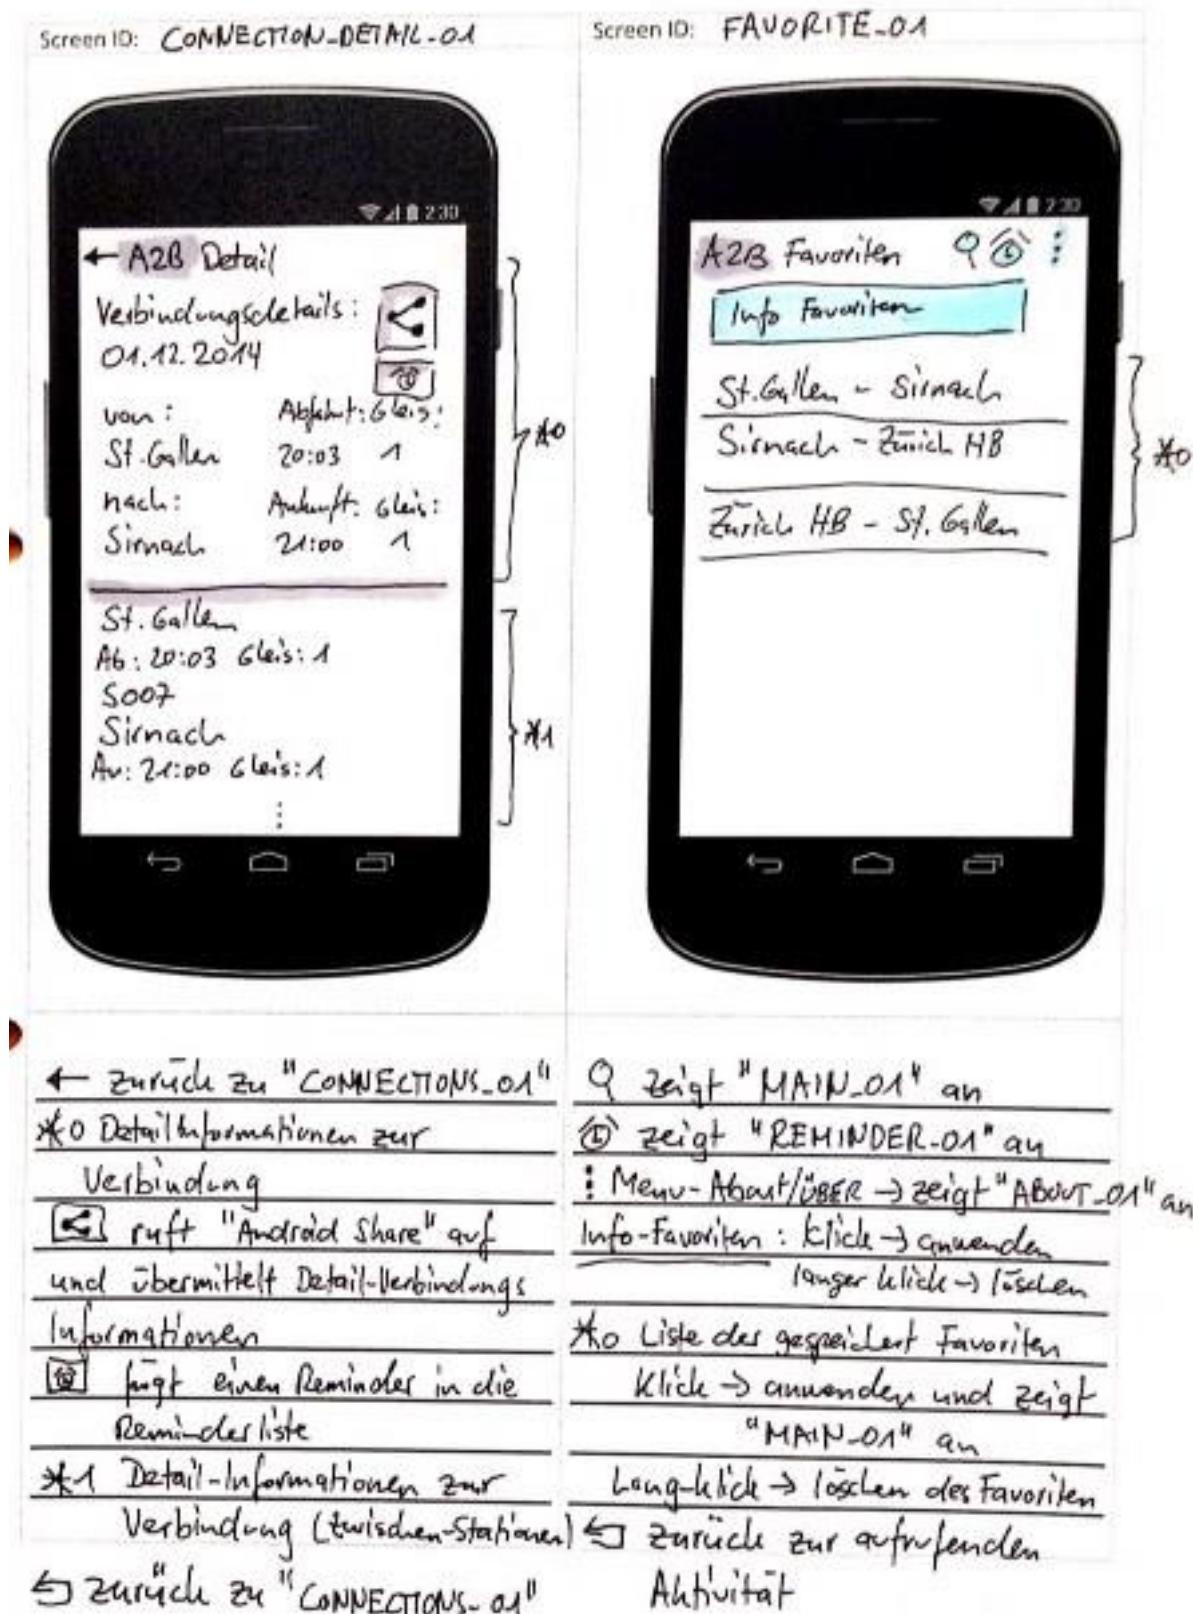 Screen ID: CONNECTION_DETAIL_01
2:30
← A2B Detail
Verbindungsdetails:
01.12.2014
von: Abfahrt: Gleis:
St. Gallen 20:03 1
nach: Ankunft: Gleis:
Sirnach 21:00 1
*0
St. Gallen
Ab: 20:03 Gleis: 1
S007
Sirnach
An: 21:00 Gleis: 1
*1
← zurück zu "CONNECTIONS_01"
*0 Detailinformationen zur
Verbindung
ruft "Android Share" auf
und übermittelt Detail-Verbindungs
Informationen
fügt einen Reminder in die
Reminderliste
*1 Detail-Informationen zur
Verbindung (zwischen-Stationen)
zurück zu "CONNECTIONS_01"
Screen ID: FAVORITE_01
2:30
A2B Favoriten
Info Favoriten
St. Gallen - Sirnach
Sirnach - Zürich HB
Zürich HB - St. Gallen
*0
zeigt "MAIN_01" an
zeigt "REMINDER_01" an
Menu-About/ÜBER → zeigt "ABOUT_01" an
Info-Favoriten: Klick → anwenden
langer klick → löschen
*0 Liste der gespeichert Favoriten
Klick → anwenden und zeigt
"MAIN_01" an
Lang-klick → löschen des Favoriten
zurück zur aufrufenden
Aktivität